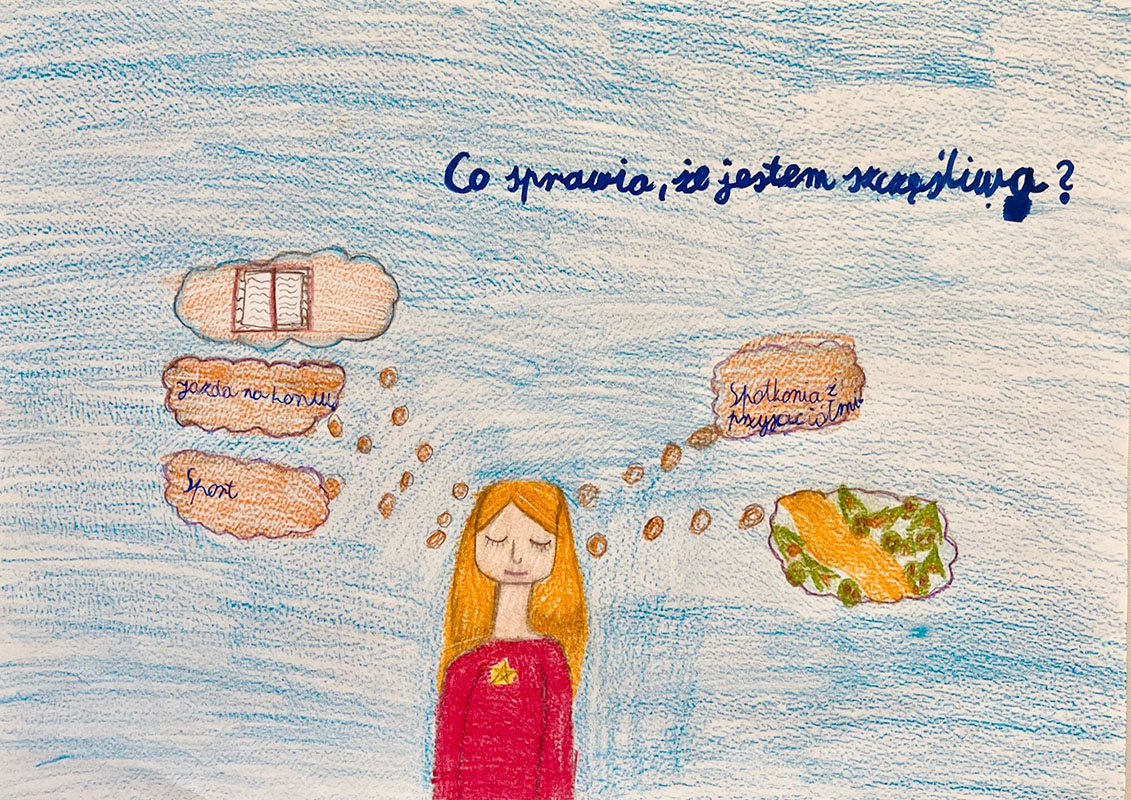 Co sprawia, że jestem szczęśliwa?
jazda na koniu
Sport
Spotkania z
przyjaciółmi